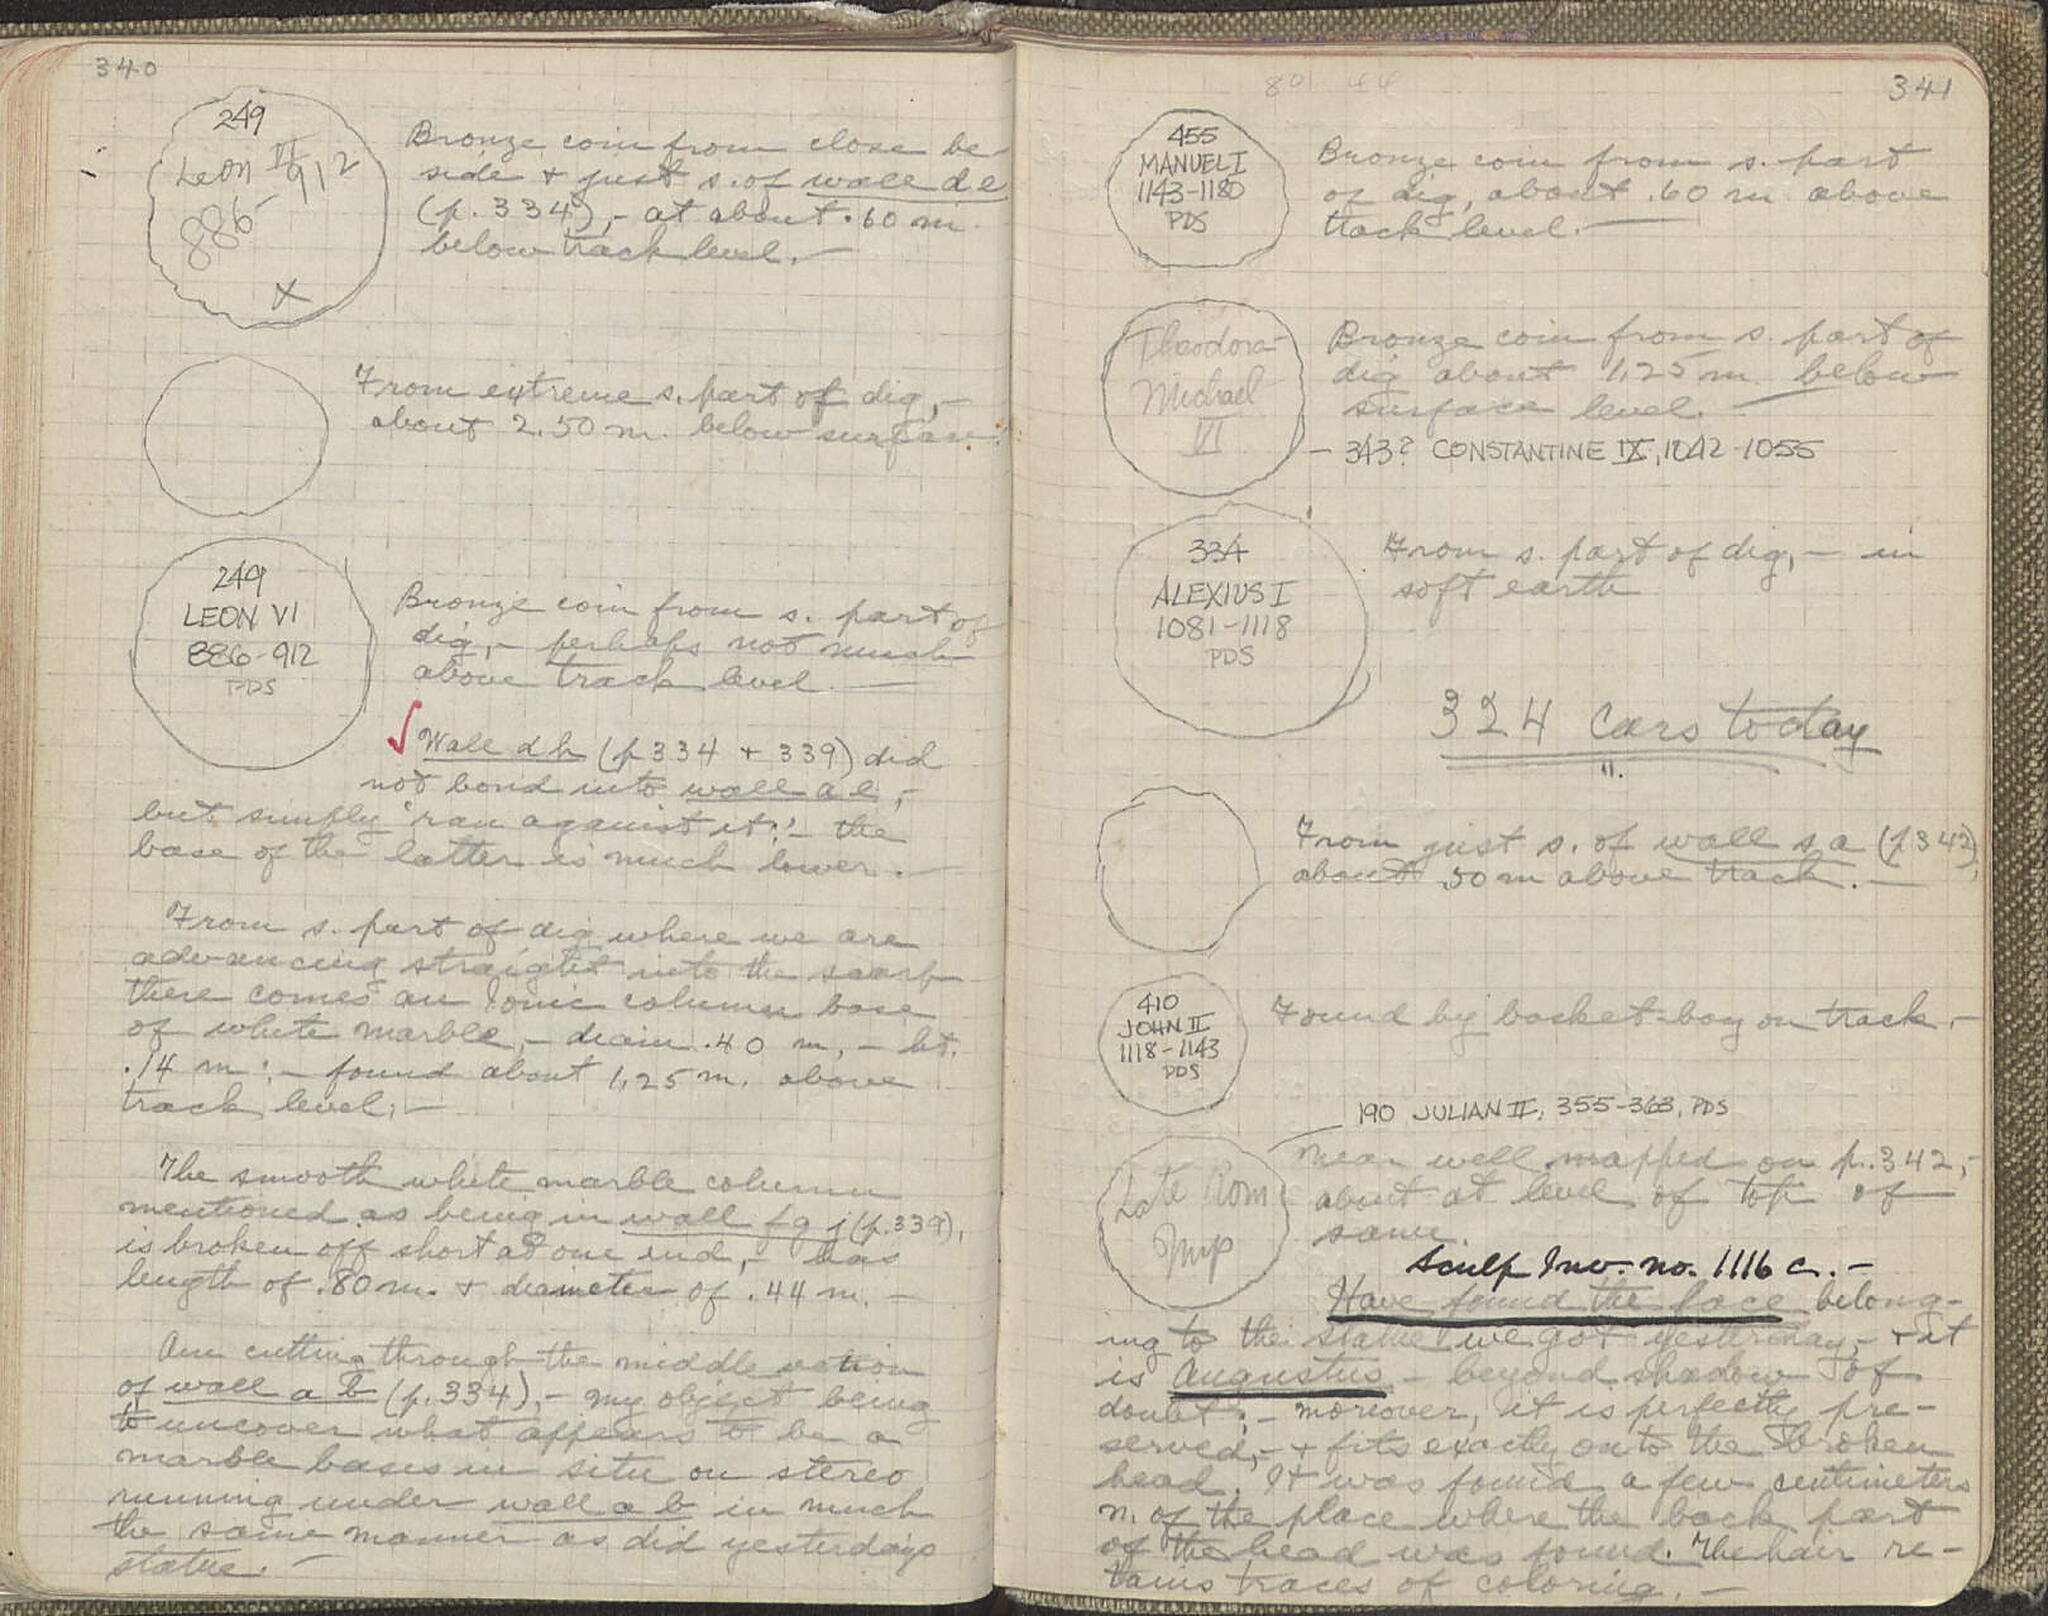 340
249
Leon VI
886-912
X
Bronze coin from close be-
side + just s. of wall de
(p. 334), - at about .60 m.
below track level. -
From extreme s. part of dig, -
about 2.50 m. below surface.
249
LEON VI
886-912
PDS
Bronze coin from s. part of
dig, - perhaps not much
above track level. -
√ Wall dh (p 334 + 339) did
not bond into wall ae, -
but simply 'ran against it': - the
base of the latter is much lower. -
From s. part of dig where we are
advancing straight into the scarp
there comes an Ionic column base
of white marble, - diam. .40 m, - ht.
.14 m: - found about 1.25 m. above
track level; -
The smooth white marble column
mentioned as being in wall fgj (p. 339),
is broken off short at one end, - has
length of .80 m. + diameter of .44 m. -
Am cutting through the middle section
of wall ab (p. 334), - my object being
to uncover what appears to be a
marble basis in situ on stereo
running under wall ab in much
the same manner as did yesterday's
statue. -
80 44
341
455
MANUEL I
1143-1180
PDS
Bronze coin from s. part
of dig, about .60 m above
track level. -
Theodora -
Michael
VI
Bronze coin from s. part of
dig about 1.25 m. below
surface level. -
- 343? CONSTANTINE IX, 1042-1055
334
ALEXIUS I
1081-1118
PDS
From s. part of dig, - in
soft earth
324 cars today
".
From just s. of wall sa (p 342),
about .50 m above track. -
410
JOHN II
1118-1143
PDS
Found by basket-boy on track. -
190 JULIAN II, 355-363, PDS
Late Rom
Imp
Near well mapped on p. 342, -
about at level of top of
same.
Sculp Inv. no. 1116 c. -
Have found the face belong-
ing to the statue we got yesterday, - + it
is Augustus - beyond shadow of
doubt; - moreover, it is perfectly pre-
served, - + fits exactly onto the broken
head. It was found a few centimeters
n. of the place where the back part
of the head was found. The hair re-
tains traces of coloring. -